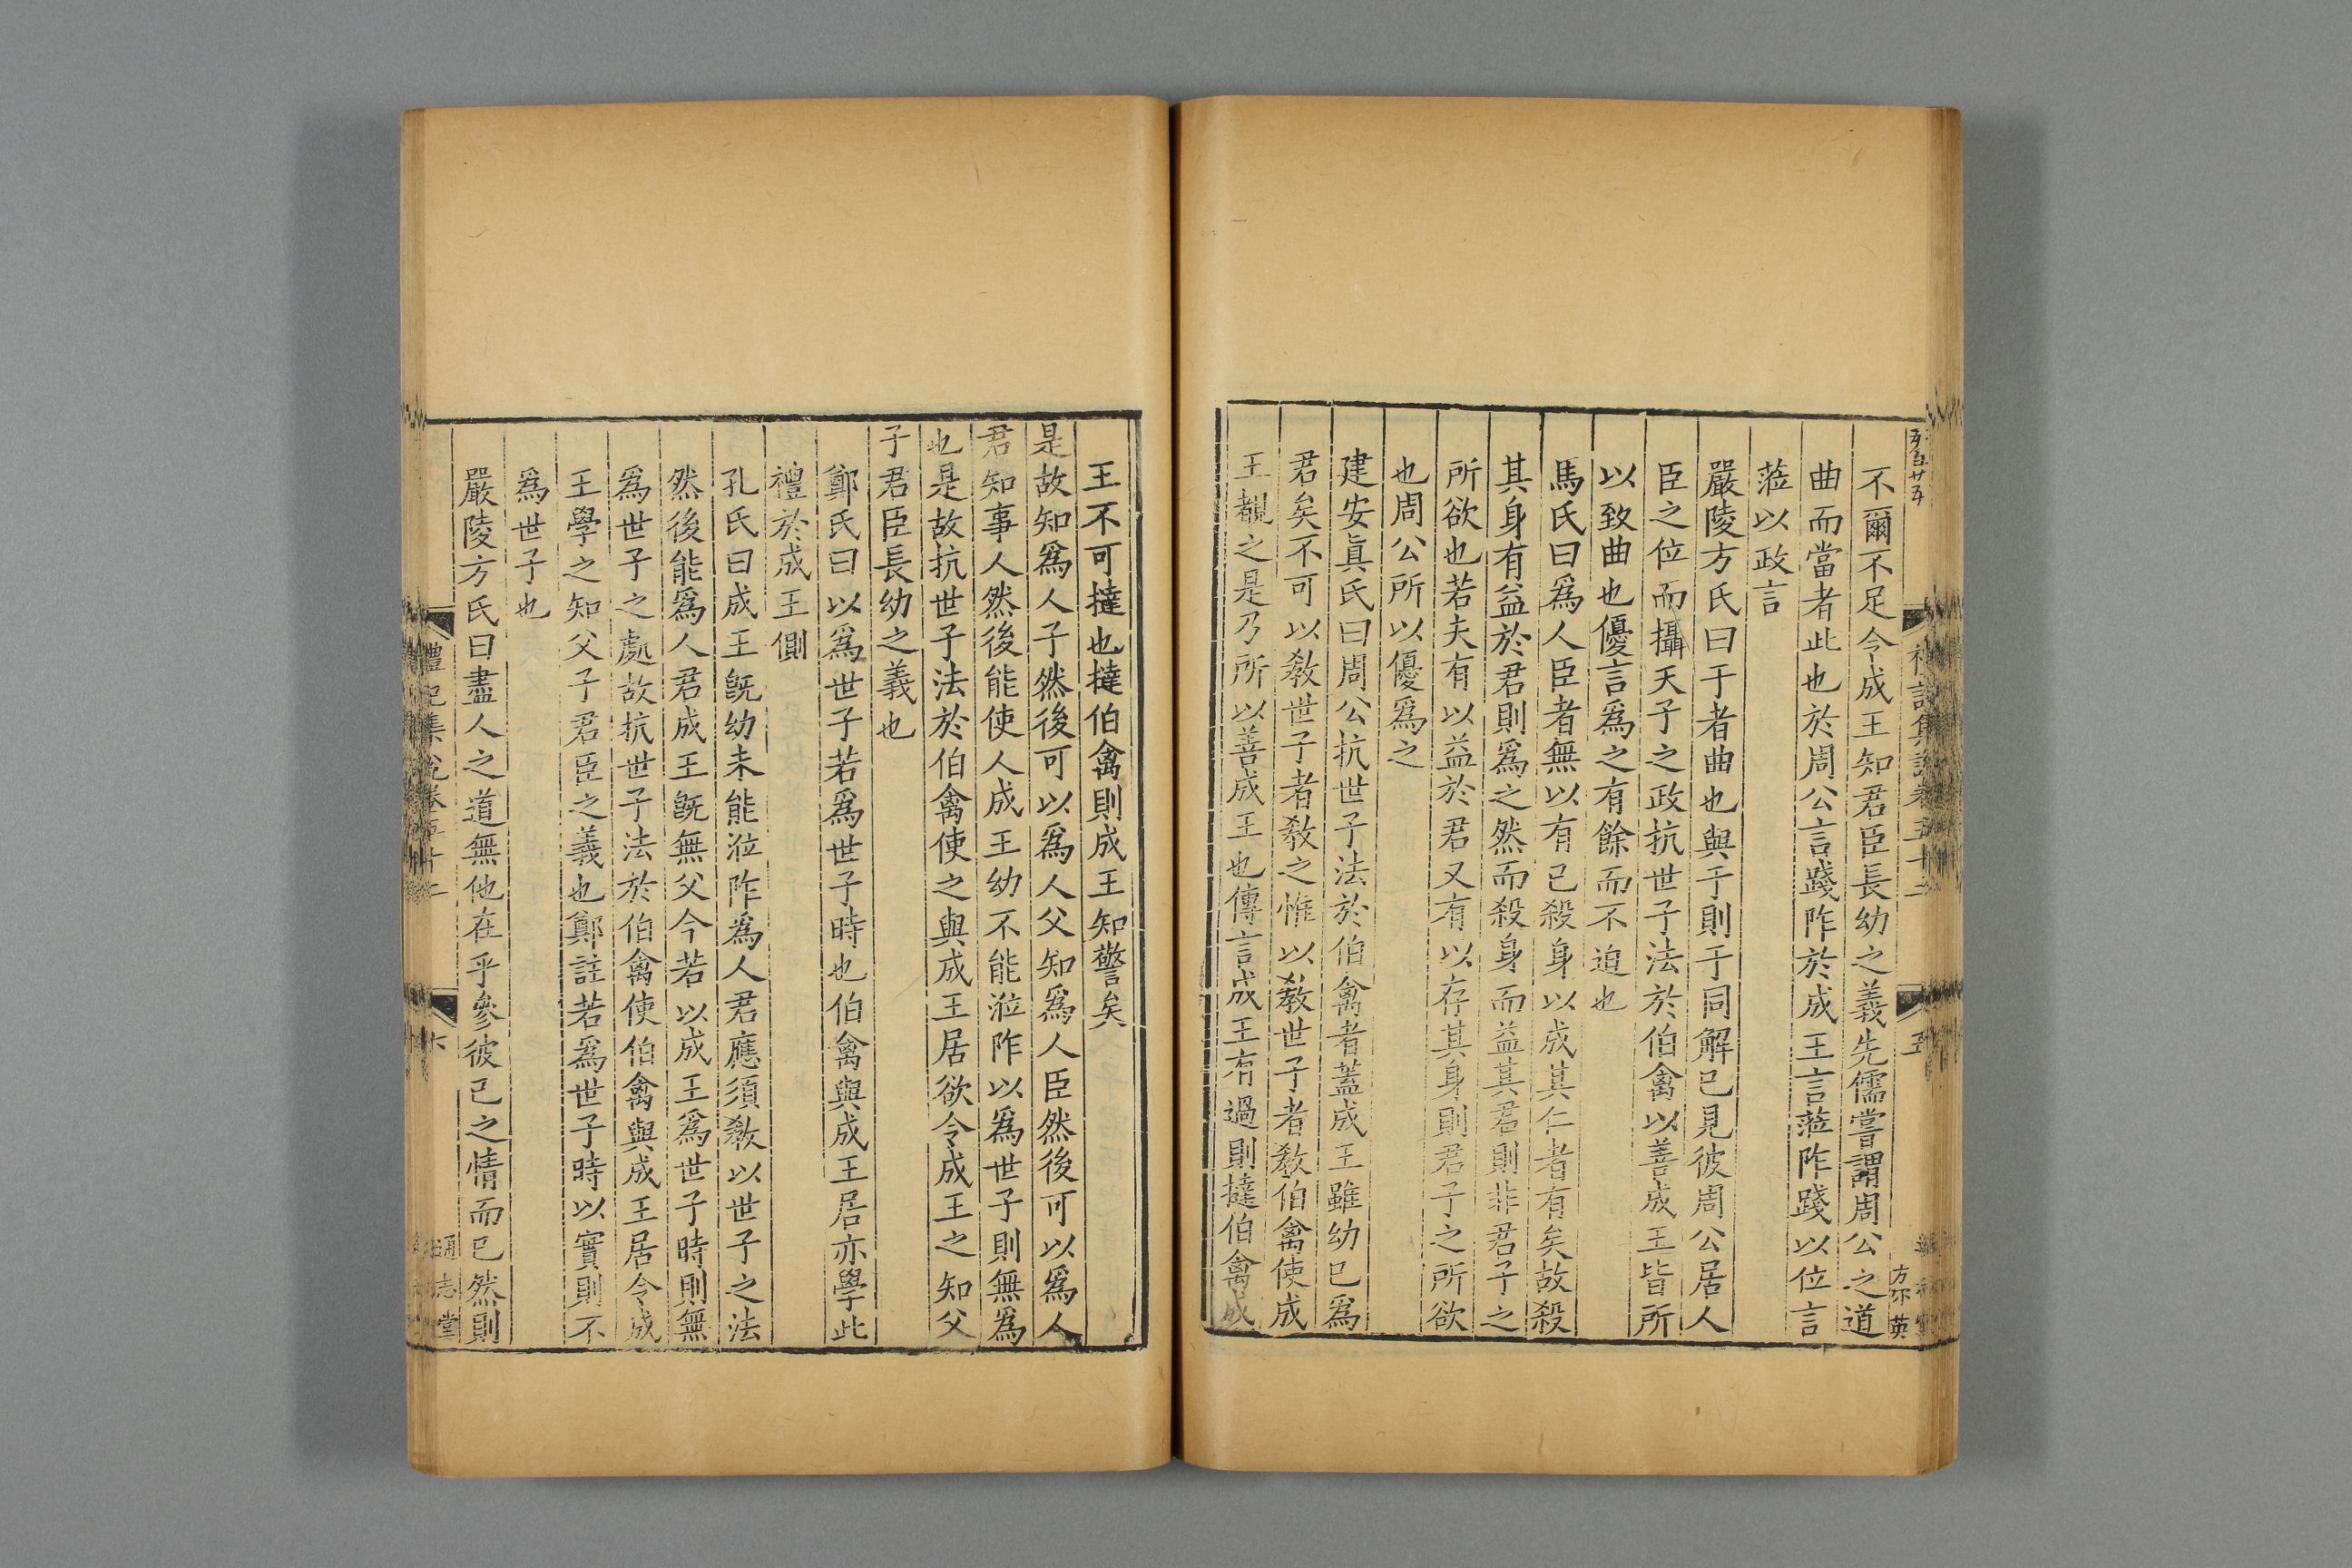 不爾不足令成王知君臣長幼之義先儒嘗謂周公之道
曲而當者此也於周公言踐阼於成王言蒞阼踐以位言
蒞以政言
嚴陵方氏曰于者曲也與于則于同解已見彼周公居人
臣之位而攝天子之政抗世子法於伯禽以善成王皆所
以致曲也優言爲之有餘而不迫也
馬氏曰爲人臣者無以有已殺身以成其仁者有矣故殺
其身有益於君則爲之然而殺身而益其君則非君子之
所欲也若夫有以益於君又有以存其身則君子之所欲
也周公所以優爲之
建安眞氏曰周公抗世子法於伯禽者蓋成王雖幼已爲
君矣不可以敎世子者敎之惟以敎世子者敎伯禽使成
王覩之是乃所以善成王也傳言成王有過則撻伯禽成
王不可撻也撻伯禽則成王知警矣
是故知爲人子然後可以爲人父知爲人臣然後可以爲人
君知事人然後能使人成王幼不能涖阼以爲世子則無爲
也是故抗世子法於伯禽使之與成王居欲令成王之知父
子君臣長幼之義也
鄭氏曰以爲世子若爲世子時也伯禽與成王居亦學此
禮於成王側
孔氏曰成王旣幼未能涖阼爲人君應須敎以世子之法
然後能爲人君成王旣無父今若以成王爲世子時則無
爲世子之處故抗世子法於伯禽使伯禽與成王居令成
王學之知父子君臣之義也鄭註若爲世子時以實則不
爲世子也
嚴陵方氏曰盡人之道無他在乎參彼已之情而已然則
禮記集說卷五十二
六
通志堂